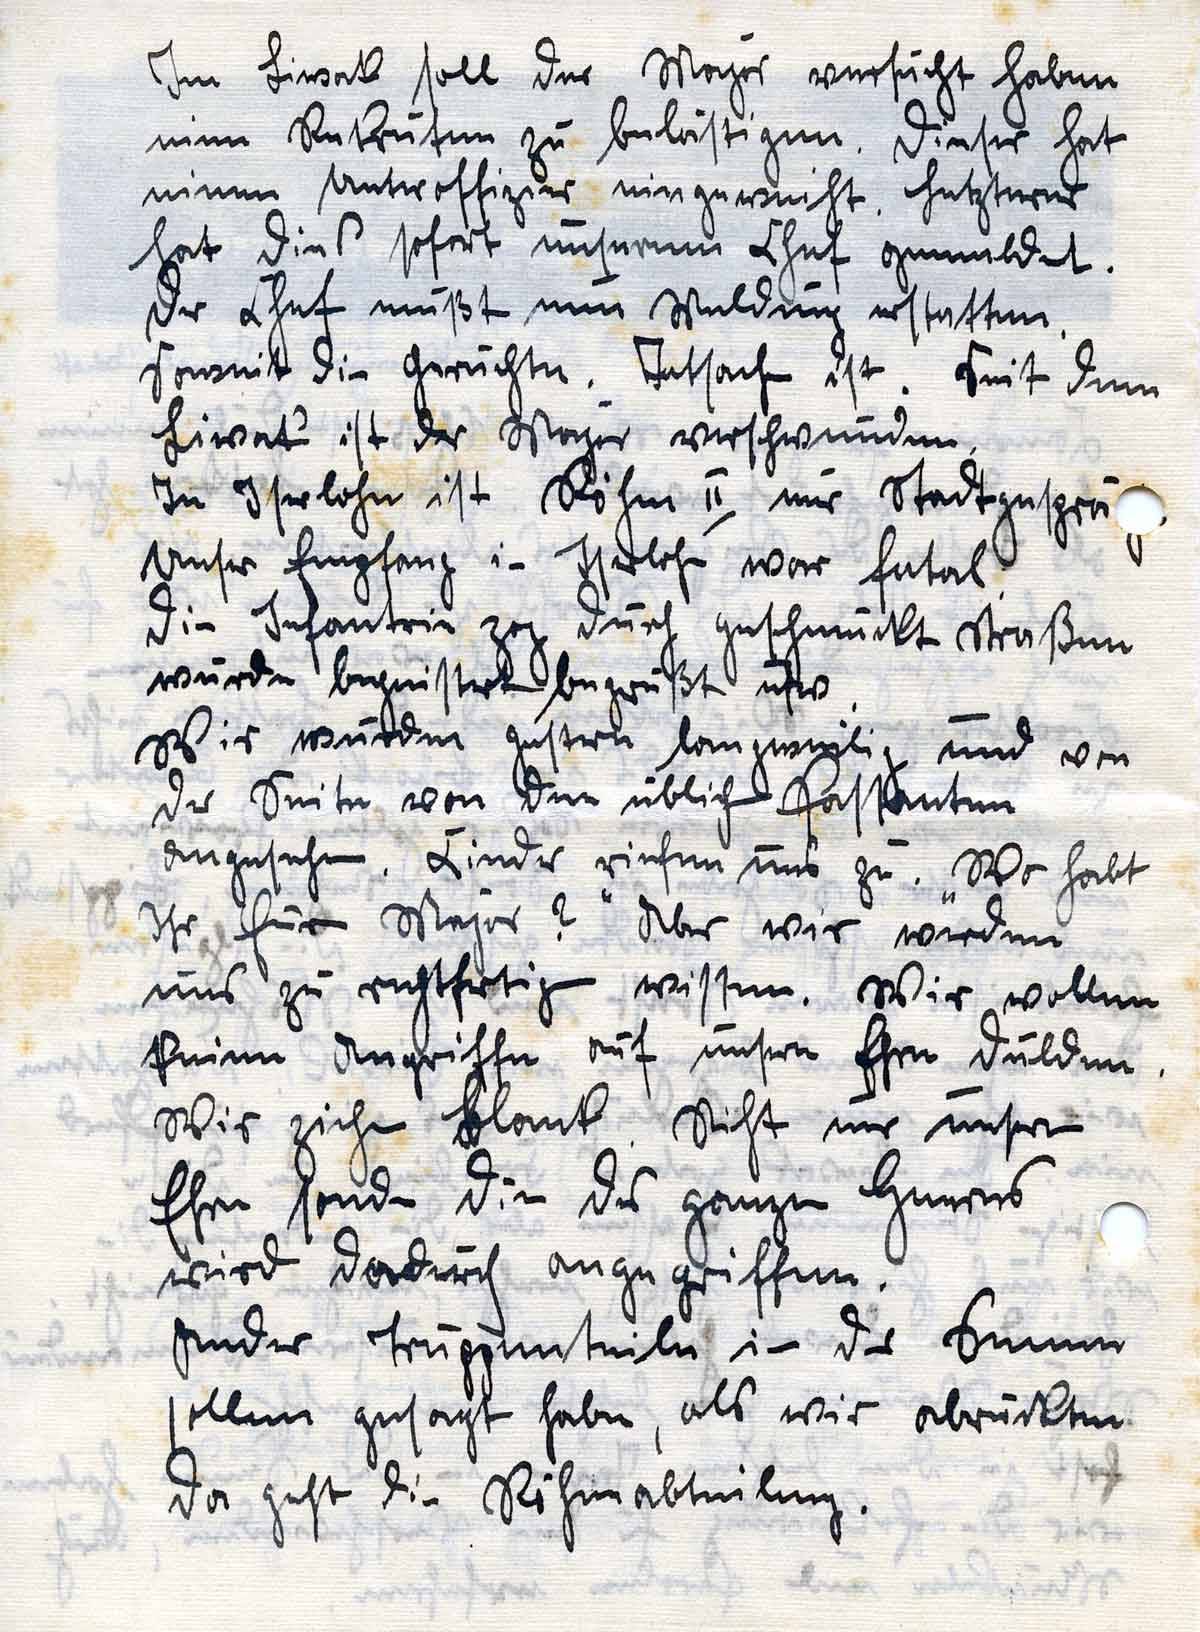 Im Biwak soll der Major versucht haben
einen Rekruten zu belästigen. Dieser hat
einen Unteroffizier eingeweiht. Letzterer
hat dies sofort unserem Chef gemeldet.
Der Chef mußt nun Meldung erstatten.
Soweit die Gerüchte. Tatsache ist. Seit dem
Biwak ist der Major verschwunden.
In Iserlohn ist Röhm II nur Stadtgesprä
Unser Empfang in Iserlohn war fatal.
Die Infantrie zog durch geschmückt Straßen
wurde begeistert begrüßt usw.
Wir wurden gestern langweilig und von
der Seite von den üblichen Passanten
angesehen. Kinder riefen uns zu. „Wo habt
Ihr Euren Major?" Aber wir werden
uns zu rechtfertigen wissen. Wir wollen
keine Angriffe auf unsere Ehre dulden.
Wir ziehen blank. Nicht nur unsere
Ehre sondern die des ganzen Heeres
wird dadurch angegriffen.
Ander Truppenteile in der Senne
sollen gesagt haben, als wir abrückten
da geht die Röhmabteilung.